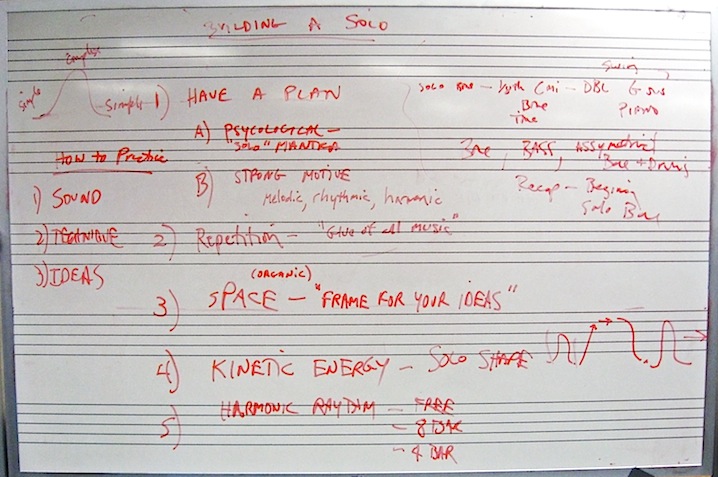 BUILDING A SOLO
Complex
Simple
Simple
How to Practice
1) SOUND
2) TECHNIQUE
3) IDEAS
1) HAVE A PLAN
A) PSYCOLOGICAL -
"SOLO" MANTRA
B) STRONG MOTIVE
Melodic, rhythmic, harmonic
2) Repetition - "Glue of all music"
(ORGANIC)
3) SPACE - "FRAME FOR YOUR IDEAS"
4) KINETIC ENERGY - SOLO SHAPE
5) HARMONIC RHYTHM - FREE
- 8 BAR
- 4 BAR
Swing
SOLO Bne - with - DBL
Bne PIANO
Time
Bne, BASS, Assymetrical
Bne + Drums
Recap - Begining
Solo Bne